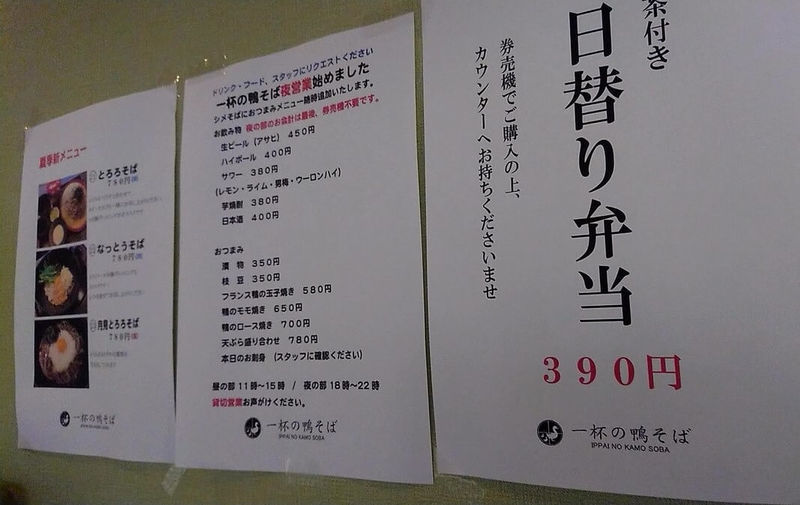 夏季新メニュー
とろろそば
780円
なっとうそば
780円
月見とろろそば
780円
一杯の鴨そば
IPPAI NO KAMO SOBA
ドリンク・フード、スタッフにリクエストください
一杯の鴨そば夜営業始めました
シメそばにおつまみメニュー随時追加いたします。
お飲み物 夜の部のお会計は最後、券売機不要です。
生ビール(アサヒ) 450円
ハイボール 400円
サワー 380円
(レモン・ライム・男梅・ウーロンハイ)
芋焼酎 380円
日本酒 400円
おつまみ
漬物 350円
枝豆 350円
フランス鴨の玉子焼き 580円
鴨のモモ焼き 650円
鴨のロース焼き 700円
天ぷら盛り合わせ 780円
本日のお刺身 (スタッフに確認ください)
昼の部11時〜15時 / 夜の部18時〜22時
貸切営業お声がけください。
一杯の鴨そば
IPPAI NO KAMO SOBA
茶付き
日替り弁当
券売機でご購入の上、
カウンターへお持ちくださいませ
390円
一杯の鴨そば
IPPAI NO KAMO SOBA